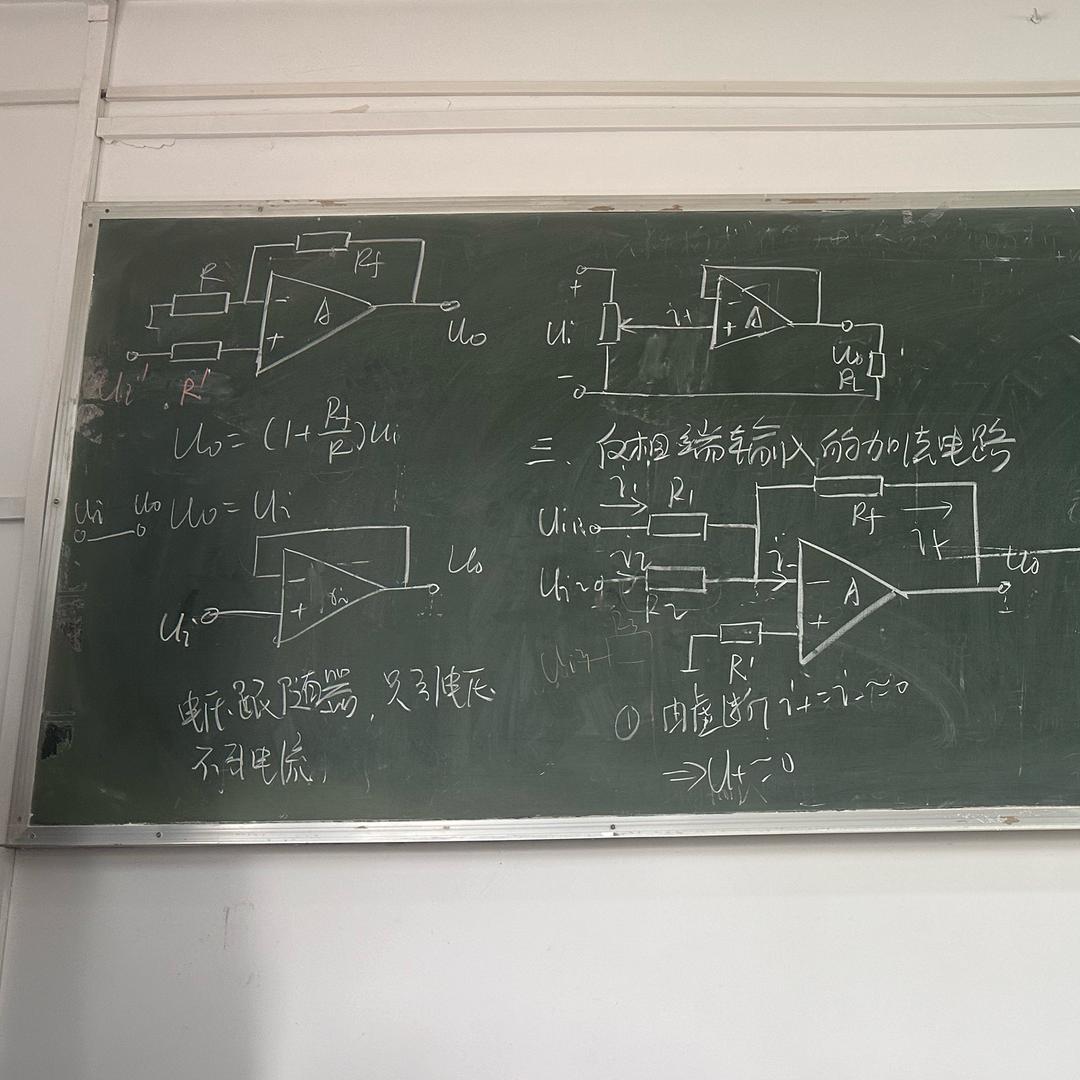 R
Rf
A
-
+
Uo
Ui
R'
Uo = (1+Rf/R)Ui
Ui Uo
Uo = Ui
-
+
Ui
Uo
电压跟随器，只引电压
不引电流，
+
Ui
-
i+
-
+
A
Uo
RL
三、反相端输入的加法电路
i1
R1
Rf
if
Ui1
i2
i-
Uo
Ui2
R2
-
A
+
R3
Ui3
R'
① 由虚断 i+=i-≈0
⇒U+≈0